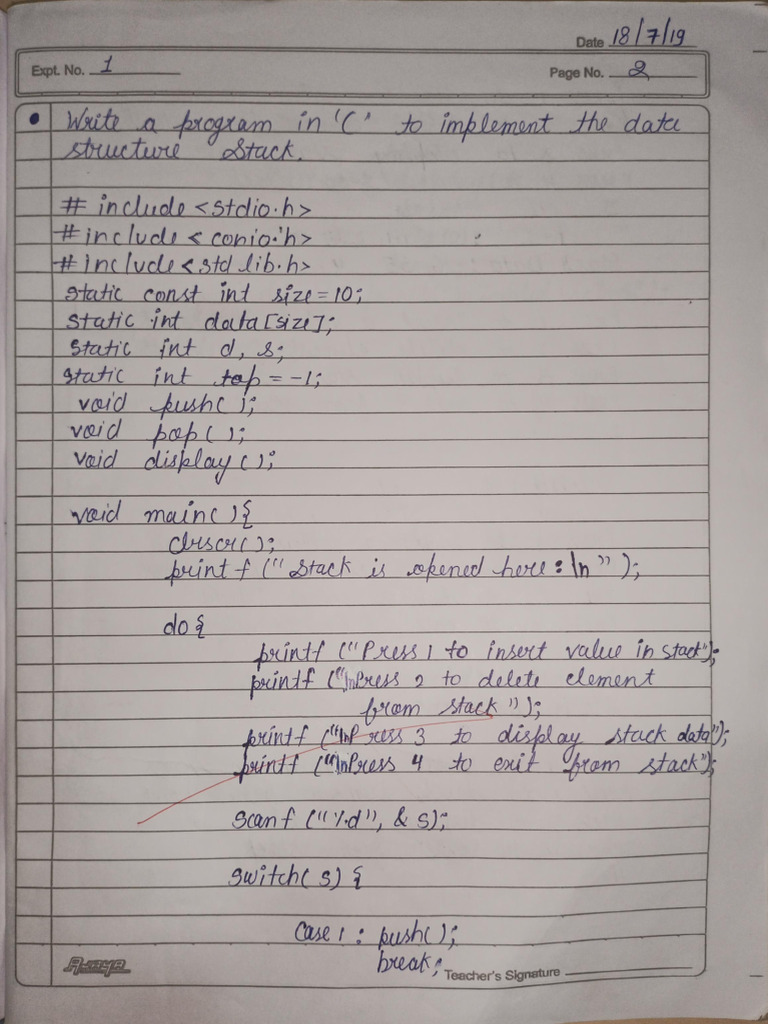 Date 18/7/19
Expt. No. 1
Page No. 2
Write a program in 'C' to implement the data
structure Stack.
# include <stdio.h>
# include < conio.h>
# include <std lib.h>
static const int size = 10;
static int data[size];
static int d, s;
static int top = -1;
void push( );
void pop( );
void display ( );
void main( ){
clrscr( );
printf (" Stack is opened here : \n " );
do {
printf ("Press 1 to insert value in stack");
printf ("\nPress 2 to delete element
from stack ");
printf ("\nPress 3 to display stack data");
printf ("\nPress 4 to exit from stack");
scanf ("%d", & s);
switch( s) {
case 1 : push( );
break;
Teacher's Signature